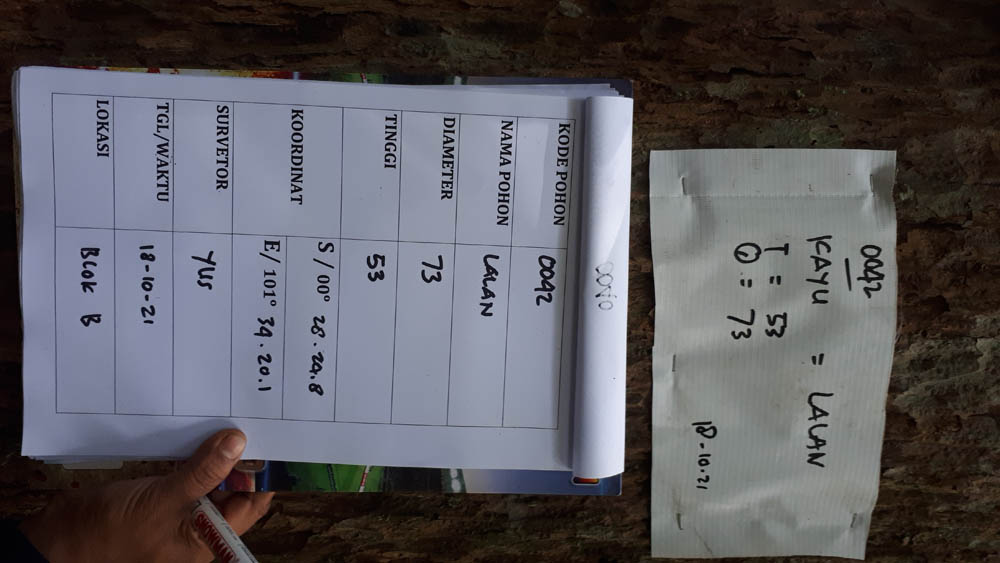 0042
KAYU = LALAN
T = 53
Ⓠ = 73
18-10-21
KODE POHON 0042
NAMA POHON LALAN
DIAMETER 73
TINGGI 53
KOORDINAT
S / 00° 28.24.8
E/ 101° 34.20.1
SURVETOR YUS
TGL/WAKTU 18-10-21
LOKASI BLOK B
SNOWMAN